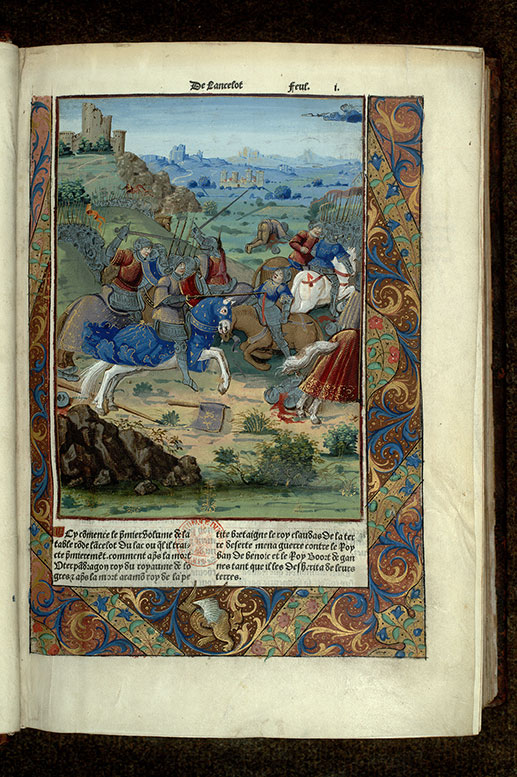 De Lancelot feul. i.
Cy cõmence le p̃mier volume de la
table rõde lãcelot du lac ou q̃l il trai⸗
cte p̃mieremẽt. comment ap̃s la mort
Uterpãdragon roy du royaume de lo
gres, ⁊ ap̃s la mort aramõ roy de la pe
tite bretaigne le roy claudas de la ter
re deserte mena guerre contre le roy
ban de benoic et le roy boort de gan
nes tant que il les desherita de leurs
terres.